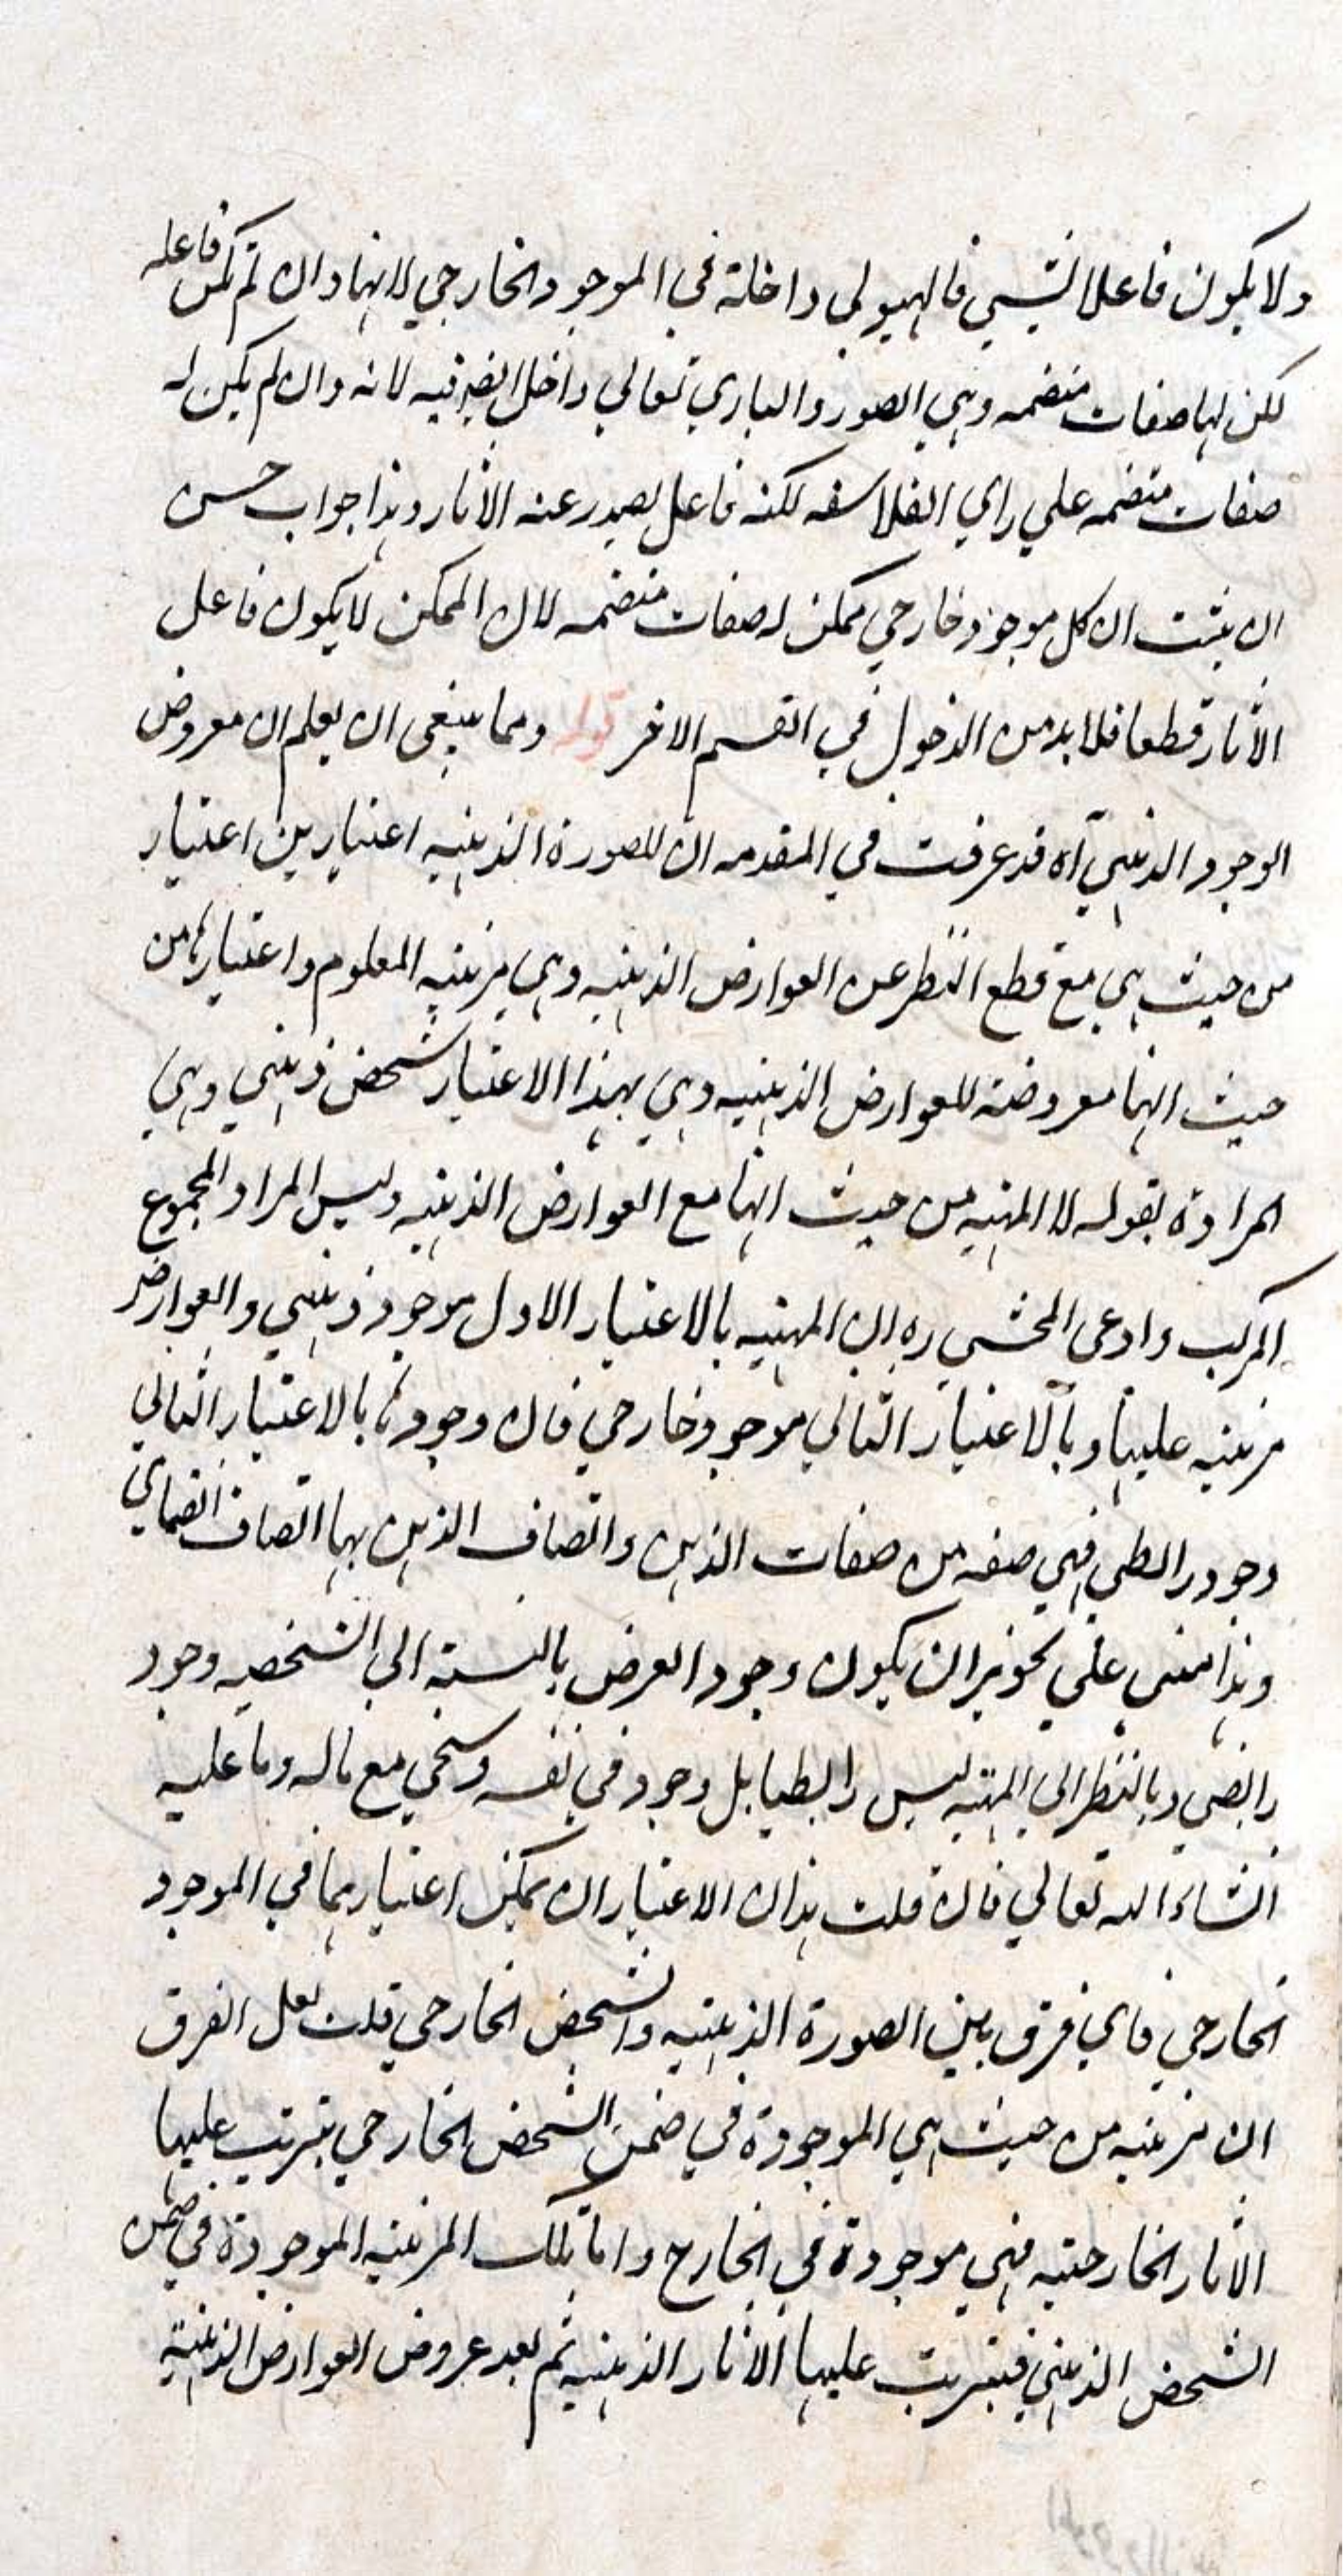 ولا يكون فاعلا لشيئ فالهيولي داخلة في الموجود الخارجي لانها وان لم تكن فاعله
لكن لها صفات منضمه وهي الصور والباري تعالي داخل ايضا فيه لانه وان لم يكن له
صفات منضمه علي راي الفلاسفه لكنه فاعل يصدر عنه الاثار وهذا جواب حسن
ان يثبت ان كل موجود خارجي ممكن له صفات منضمه لان الممكن لا يكون فاعل
الآثار قطعا فلا بد من الدخول في القسم الاخر قوله ومما ينبغي ان يعلم ان معروض
الوجود الذهني آه قد عرفت في المقدمه ان للصورة الذهنيه اعتبارين اعتبار
من حيث هي مع قطع النظر عن العوارض الذهنيه وهي مرتبه المعلوم واعتبارها من
حيث انها معروضة للعوارض الذهنيه وهي بهذا الاعتبار شخص ذهني وهي
المرادة بقوله لا المهيه من حيث انها مع العوارض الذهنيه وليس المراد المجموع
المركب وادعى المحشي ره ان المهيه بالاعتبار الاول موجود ذهني والعوارض
مرتبه عليها وبالاعتبار الثاني موجود خارجي فان وجودها بالاعتبار الثاني
وجود رابطي فهي صفه من صفات الذهن واتصاف الذهن بها اتصاف انضمامي
وهذا مبني علي تجويز ان يكون وجود العرض بالنسبة الي الشخصيه وجود
رابطي وبالنظر الي المهيه ليس رابطيا بل وجود في نفسه وسيجي مع ماله وما عليه
انشاء الله تعالي فان قلت هذان الاعتباران يمكن اعتبارهما في الموجود
الخارجي فاي فرق بين الصورة الذهنيه والشخص الخارجي قلت لعل الفرق
ان مرتبه من حيث هي الموجودة في ضمن الشخص الخارجي يترتب عليها
الاثار الخارجيه فهي موجودة في الخارج واما تلك المرتبه الموجودة في ضمن
الشخص الذهني فيترتب عليها الاثار الذهنيه ثم بعد عروض العوارض الذهنية